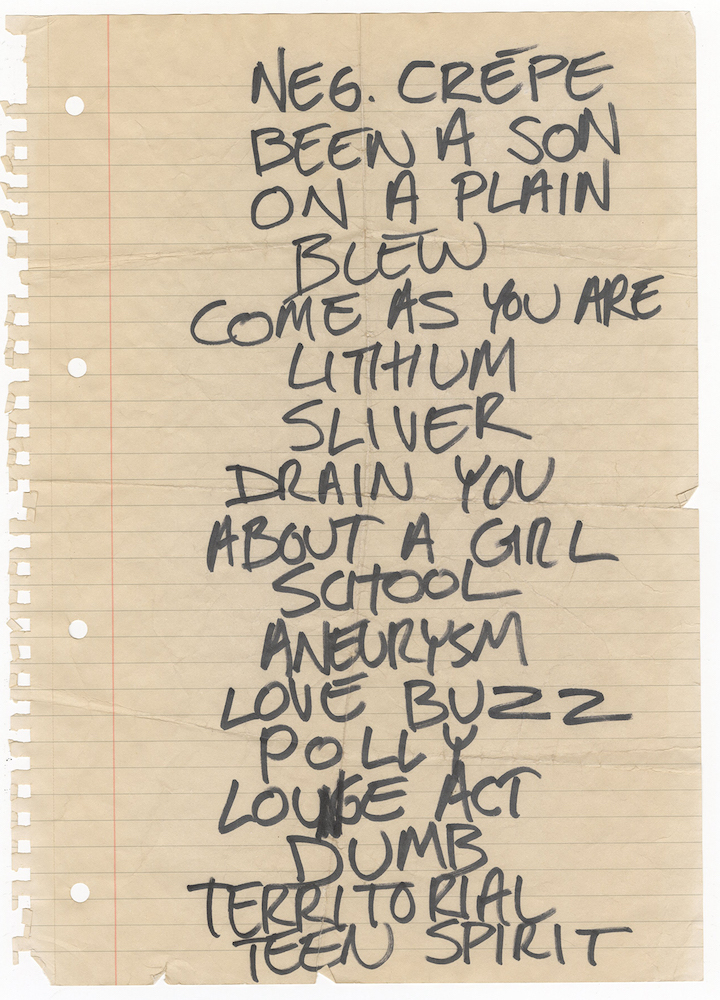 NEG. CRĒPE
BEEN A SON
ON A PLAIN
BLEW
COME AS YOU ARE
LITHIUM
SLIVER
DRAIN YOU
ABOUT A GIRL
SCHOOL
ANEURYSM
LOVE BUZZ
POLLY
LOUNGE ACT
DUMB
TERRITORIAL
TEEN SPIRIT